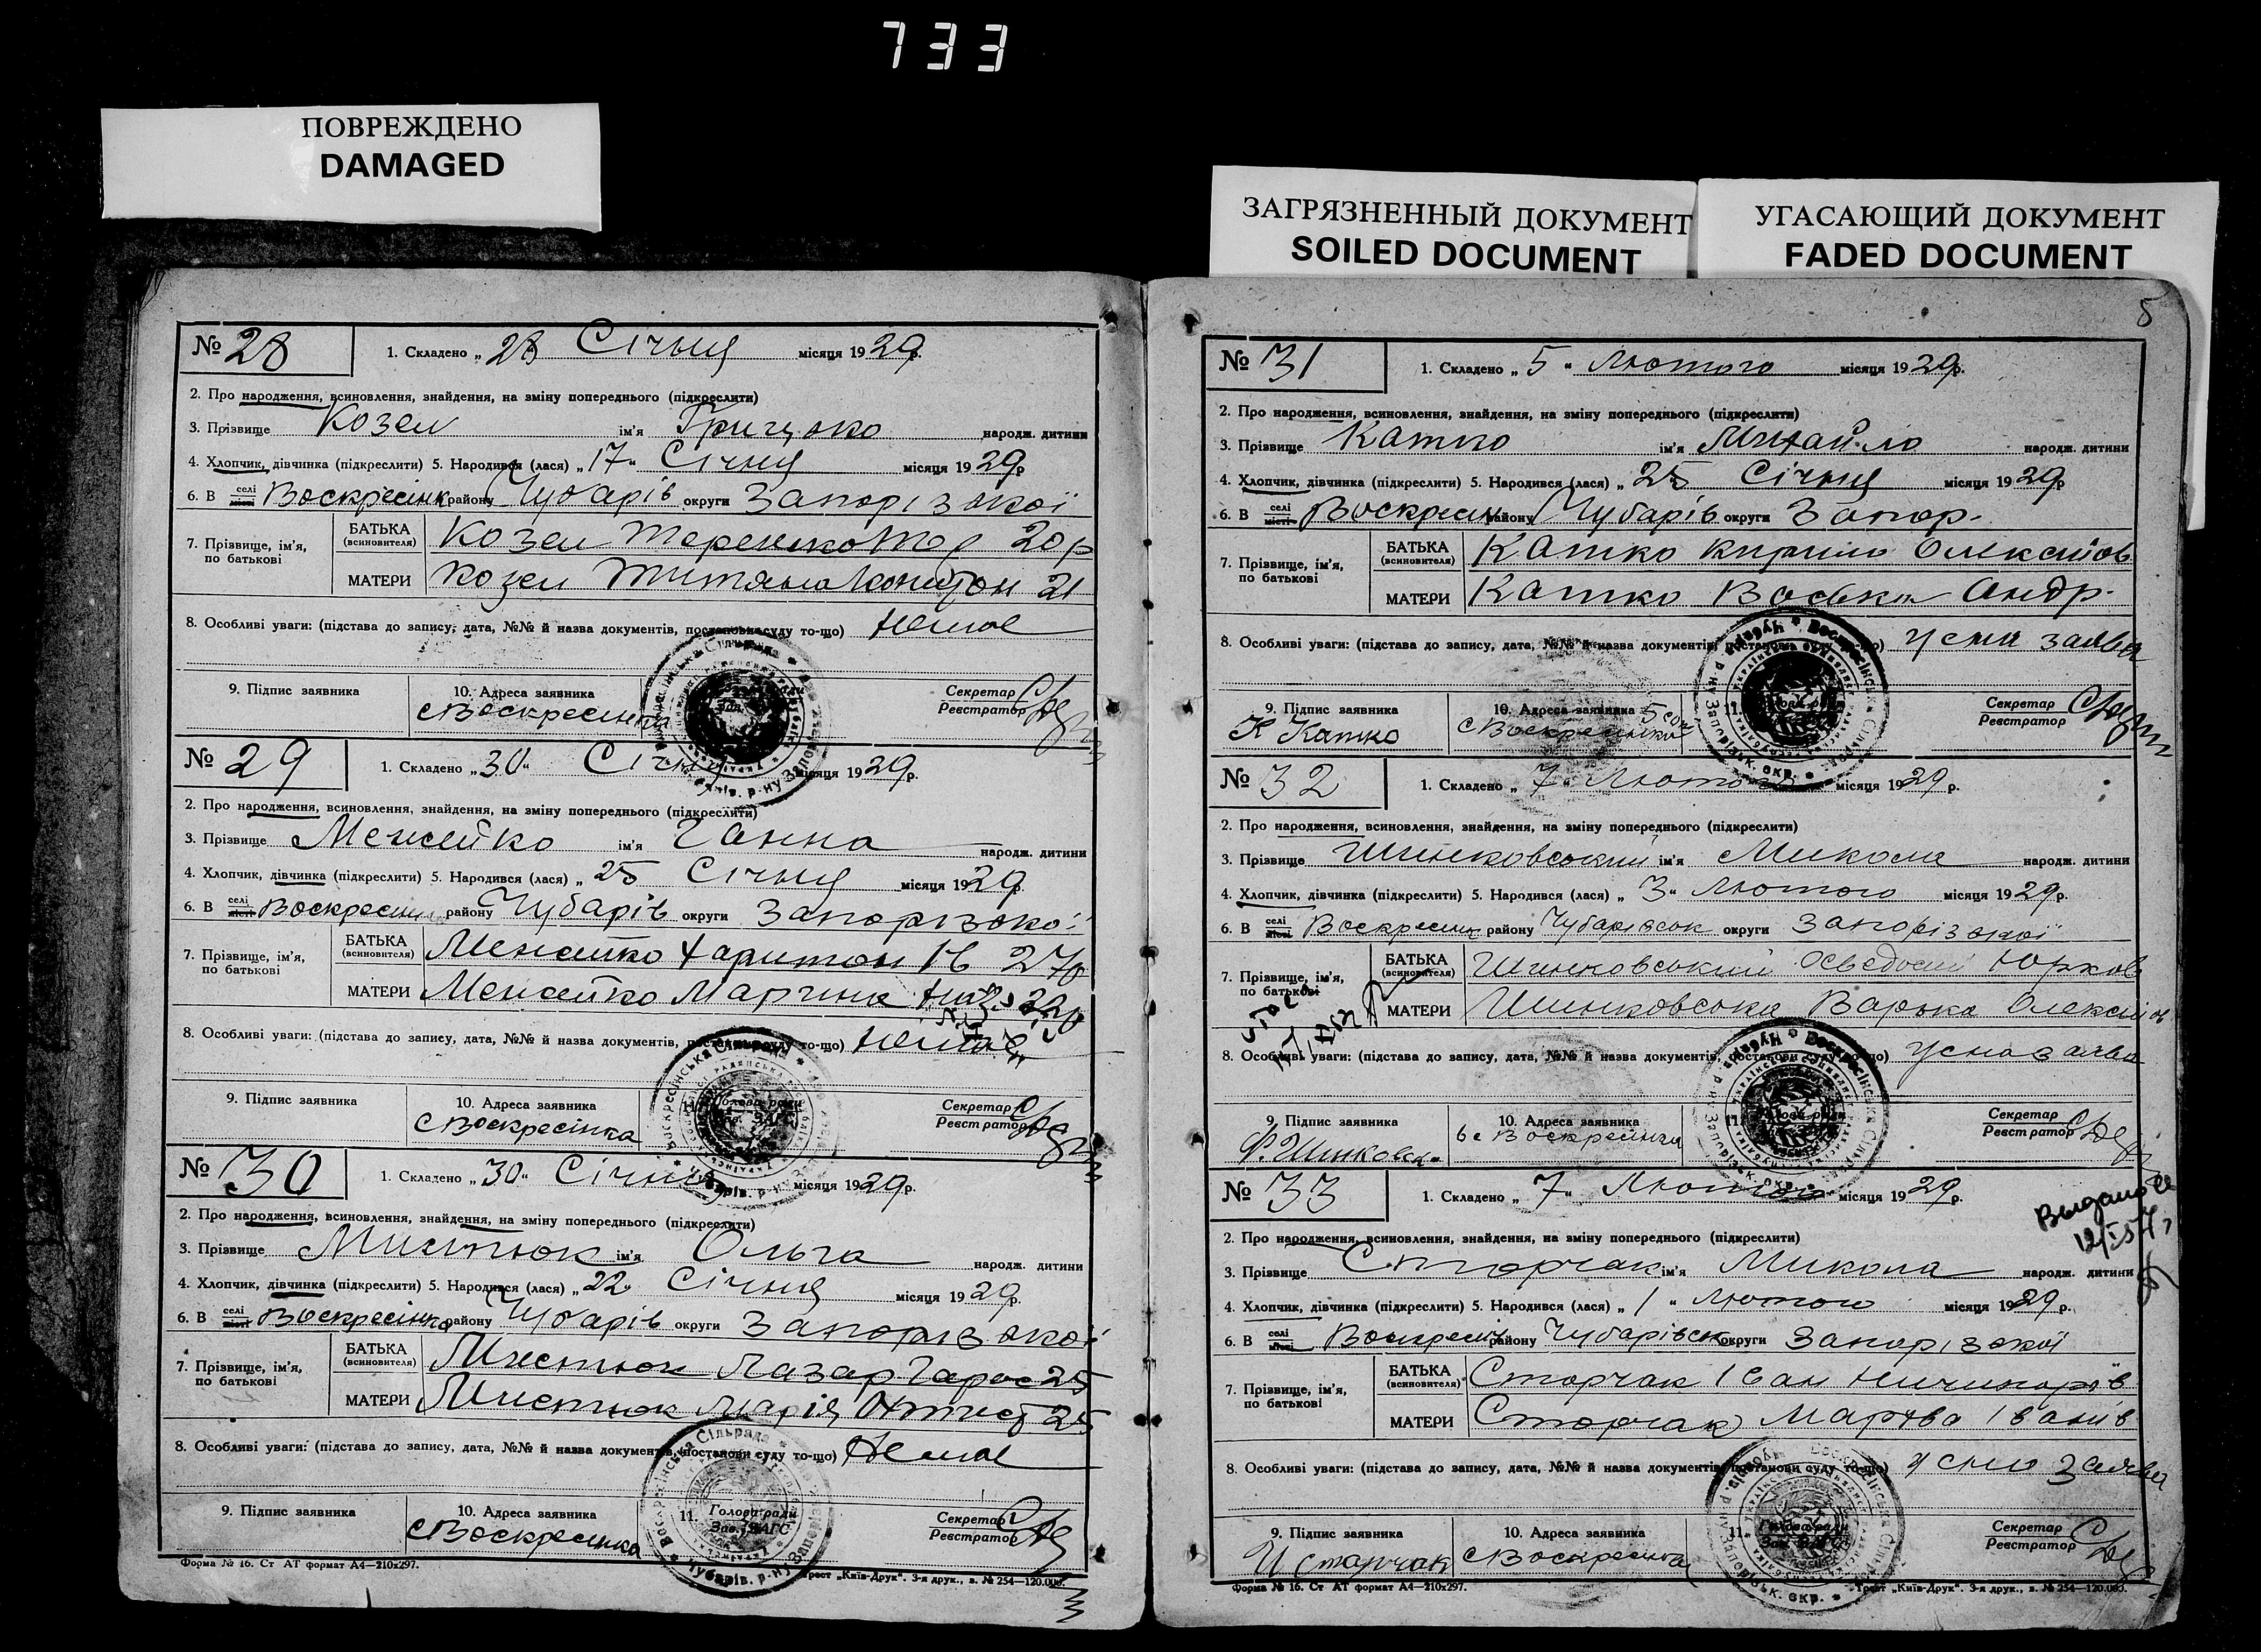 733
ПОВРЕЖДЕНО
DAMAGED
ЗАГРЯЗНЕННЫЙ ДОКУМЕНТ
SOILED DOCUMENT
УГАСАЮЩИЙ ДОКУМЕНТ
FADED DOCUMENT
№ 28 1. Складено „ 28 Січня місяця 1929 р.
2. Про народження, всиновлення, знайдення, на зміну попереднього (підкреслити)
3. Прізвище Козел ім'я Грицько народж. дитини
4. Хлопчик, дівчинка (підкреслити) 5. Народився (лася) „ 17 “ Січня місяця 1929 р
6. В селі місті Воскресінк району Чубарів округи Запорізької
7. Прізвище, ім'я, по батькові БАТЬКА (всиновителя) Козел 20 р
МАТЕРИ Козел 21
8. Особливі уваги: (підстава до запису, дата, №№ й назва документів, постанови суду то-що) Немає
9. Підпис заявника 10. Адреса заявника Секретар
с Воскресінка Реєстратор
№ 29 1. Складено „ 30 “ Січня місяця 1929 р.
2. Про народження, всиновлення, знайдення, на зміну попереднього (підкреслити)
3. Прізвище ім'я Ганна народж. дитини
4. Хлопчик, дівчинка (підкреслити) 5. Народився (лася) „ 25 Січня місяця 1929 р.
6. В селі місті Воскресін району Чубарів округи Запорізької
7. Прізвище, ім'я, по батькові БАТЬКА (всиновителя) Харитон Ів 27р
МАТЕРИ
8. Особливі уваги: (підстава до запису, дата, №№ й назва документів, постанови суду то-що) Немає
9. Підпис заявника 10. Адреса заявника Секретар
с Воскресінка Реєстратор
№ 30 1. Складено „ 30 “ Січня місяця 1929 р.
2. Про народження, всиновлення, знайдення, на зміну попереднього (підкреслити)
3. Прізвище ім'я Ольга народж. дитини
4. Хлопчик, дівчинка (підкреслити) 5. Народився (лася) „ 22 Січня місяця 1929 р.
6. В селі місті Воскресінка району Чубарів округи Запорізької
7. Прізвище, ім'я, по батькові БАТЬКА (всиновителя) Лазар Тарас 25
МАТЕРИ Марія 25
8. Особливі уваги: (підстава до запису, дата, №№ й назва документів, постанови суду то-що) Немає
9. Підпис заявника 10. Адреса заявника 11. Голова ради Зав. ЗАГС Секретар
с Воскресинка Реєстратор
Форма № 16. Ст АТ формат А4—210х297. Трест „Київ-Друк“. 3-я друк., з. № 254—120.000.
5
№ 31 1. Складено „ 5 “ Лютого місяця 1929 р.
2. Про народження, всиновлення, знайдення, на зміну попереднього (підкреслити)
3. Прізвище Катко ім'я Михайло народж. дитини
4. Хлопчик, дівчинка (підкреслити) 5. Народився (лася) „ 25 Січня місяця 1929 р
6. В селі місті Воскресін району Чубарів округи Запор.
7. Прізвище, ім'я, по батькові БАТЬКА (всиновителя) Катко Кирило Олексійов
МАТЕРИ Катко Андр.
8. Особливі уваги: (підстава до запису, дата, №№ й назва документів, постанови суду то-що) Усна заява
9. Підпис заявника 10. Адреса заявника 11. Секретар
К Катко с Воскресинка Реєстратор
№ 32 1. Складено „ 7 “ Лютого місяця 1929 р.
2. Про народження, всиновлення, знайдення, на зміну попереднього (підкреслити)
3. Прізвище Шинковський ім'я Микола народж. дитини
4. Хлопчик, дівчинка (підкреслити) 5. Народився (лася) „ 3 “ Лютого місяця 1929 р.
6. В селі місті Воскресін району Чубарівськ округи Запорізької
7. Прізвище, ім'я, по батькові БАТЬКА (всиновителя) Шинковський Юрков
МАТЕРИ Шинковська Варька Олексійов
8. Особливі уваги: (підстава до запису, дата, №№ й назва документів, постанови суду то-що) Усна заява
9. Підпис заявника 10. Адреса заявника Секретар
Воскресинка Реєстратор
№ 33 1. Складено „ 7 “ Лютого місяця 1929 р.
Выдано
2. Про народження, всиновлення, знайдення, на зміну попереднього (підкреслити)
3. Прізвище Сторчак ім'я Микола народж. дитини
4. Хлопчик, дівчинка (підкреслити) 5. Народився (лася) „ 1 “ Лютого місяця 1929 р.
6. В селі місті Воскресін району Чубарівськ округи Запорізької
7. Прізвище, ім'я, по батькові БАТЬКА (всиновителя) Сторчак Іван Ничипорів
МАТЕРИ Сторчак Марфва Іванів
8. Особливі уваги: (підстава до запису, дата, №№ й назва документів, постанови суду то-що) Усна Заява
9. Підпис заявника 10. Адреса заявника 11. Секретар
И Старчак с Воскресинка Реєстратор
Форма № 16. Ст АТ формат А4—210х297. Трест „Київ-Друк“. 3-я друк., з. № 254—120.000.